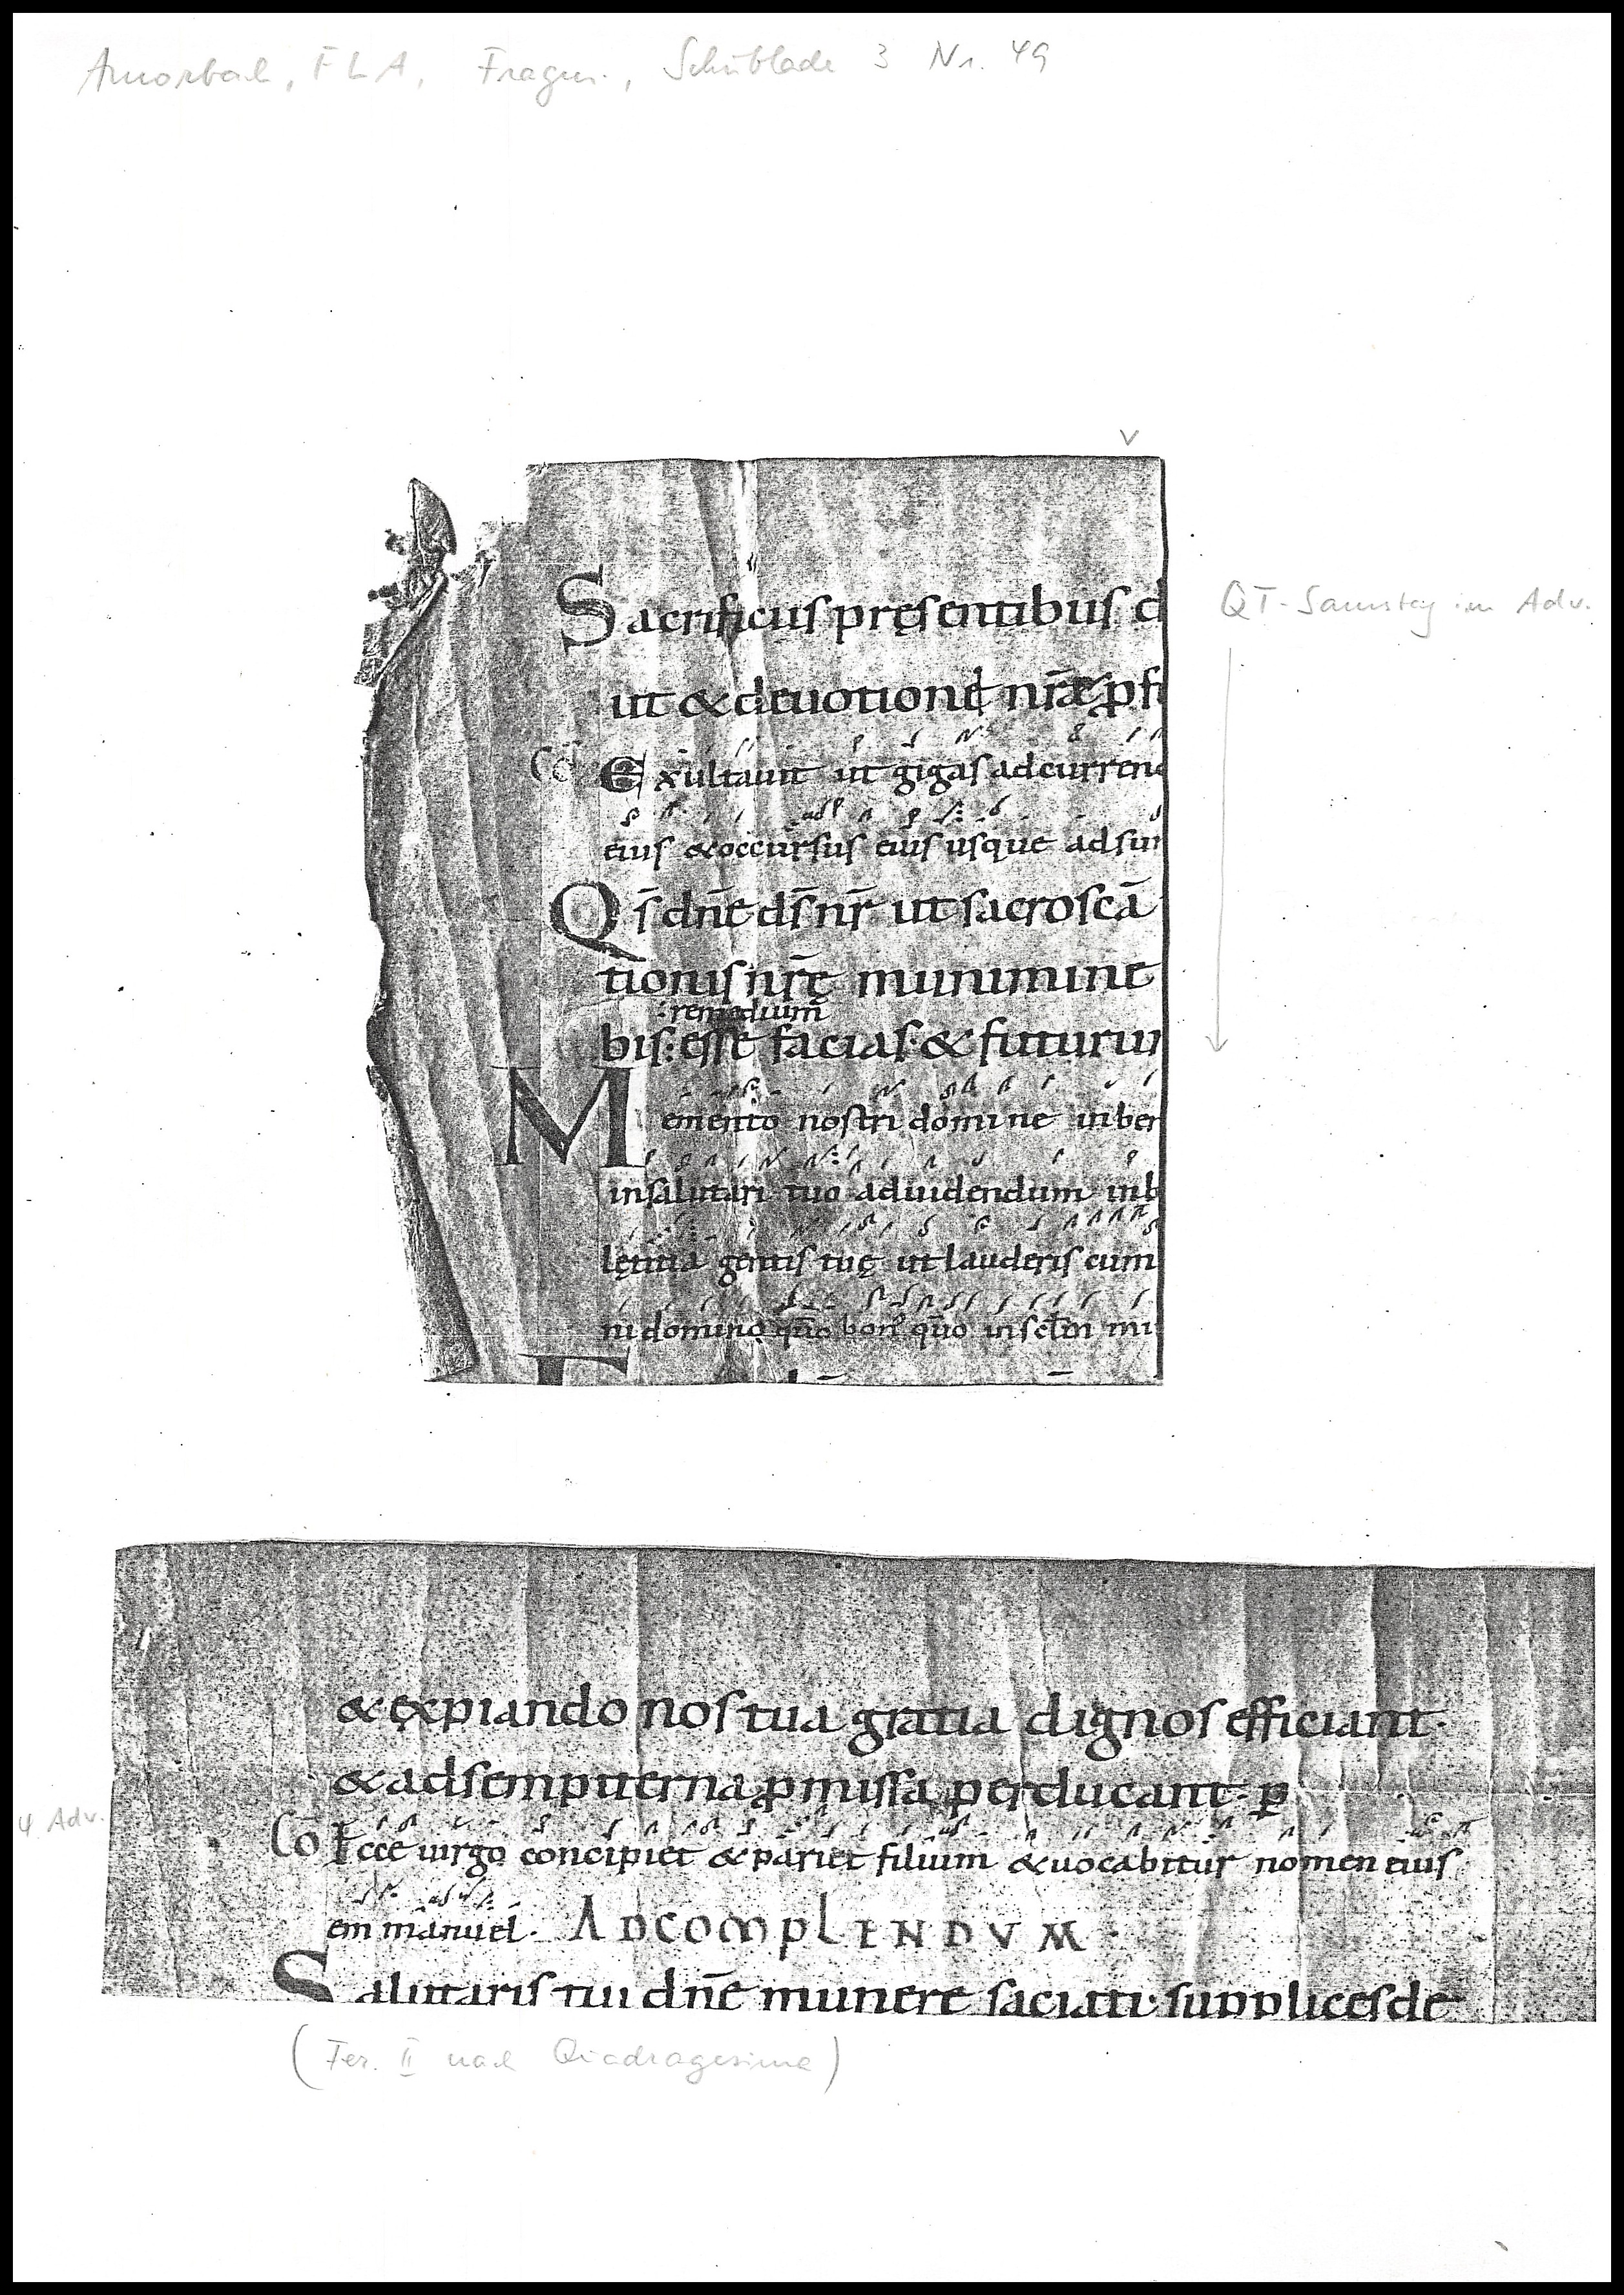 Amorbach, FLA, Fragm., Schublade 3 Nr. 49
v
Sacrificiis pręsentibus d
QT-Samstag im Adv.
ut & deuotionę nr̄æ ꝓfi
Co Exultauit ut gigas ad curren
eius & occursus eius usque ad sum
Qs̄ dn̄e ds̄ nr̄ ut sacroscā
tionis nr̄ę munimine
remedium
bis: esse facias: & futurum
Memento nostri domine in ben
in salutari tuo ad uidendum in b
lętitia gentis tuę ut lauderis cum
ni domino qm̄o bon qm̄o in sclm̄ mi
& expiando nos tua gratia dignos efficiant.
& ad sempiterna ꝓmissa perducant. p̄
4 Adv.
Co Ecce uirgo concipiet & pariet filium & uocabitur nomen eius
emmanuel. ADCOMPLENDVM.
Salutaris tui dn̄e munere saciati supplices de
(Fer. II nach Quadragesima)